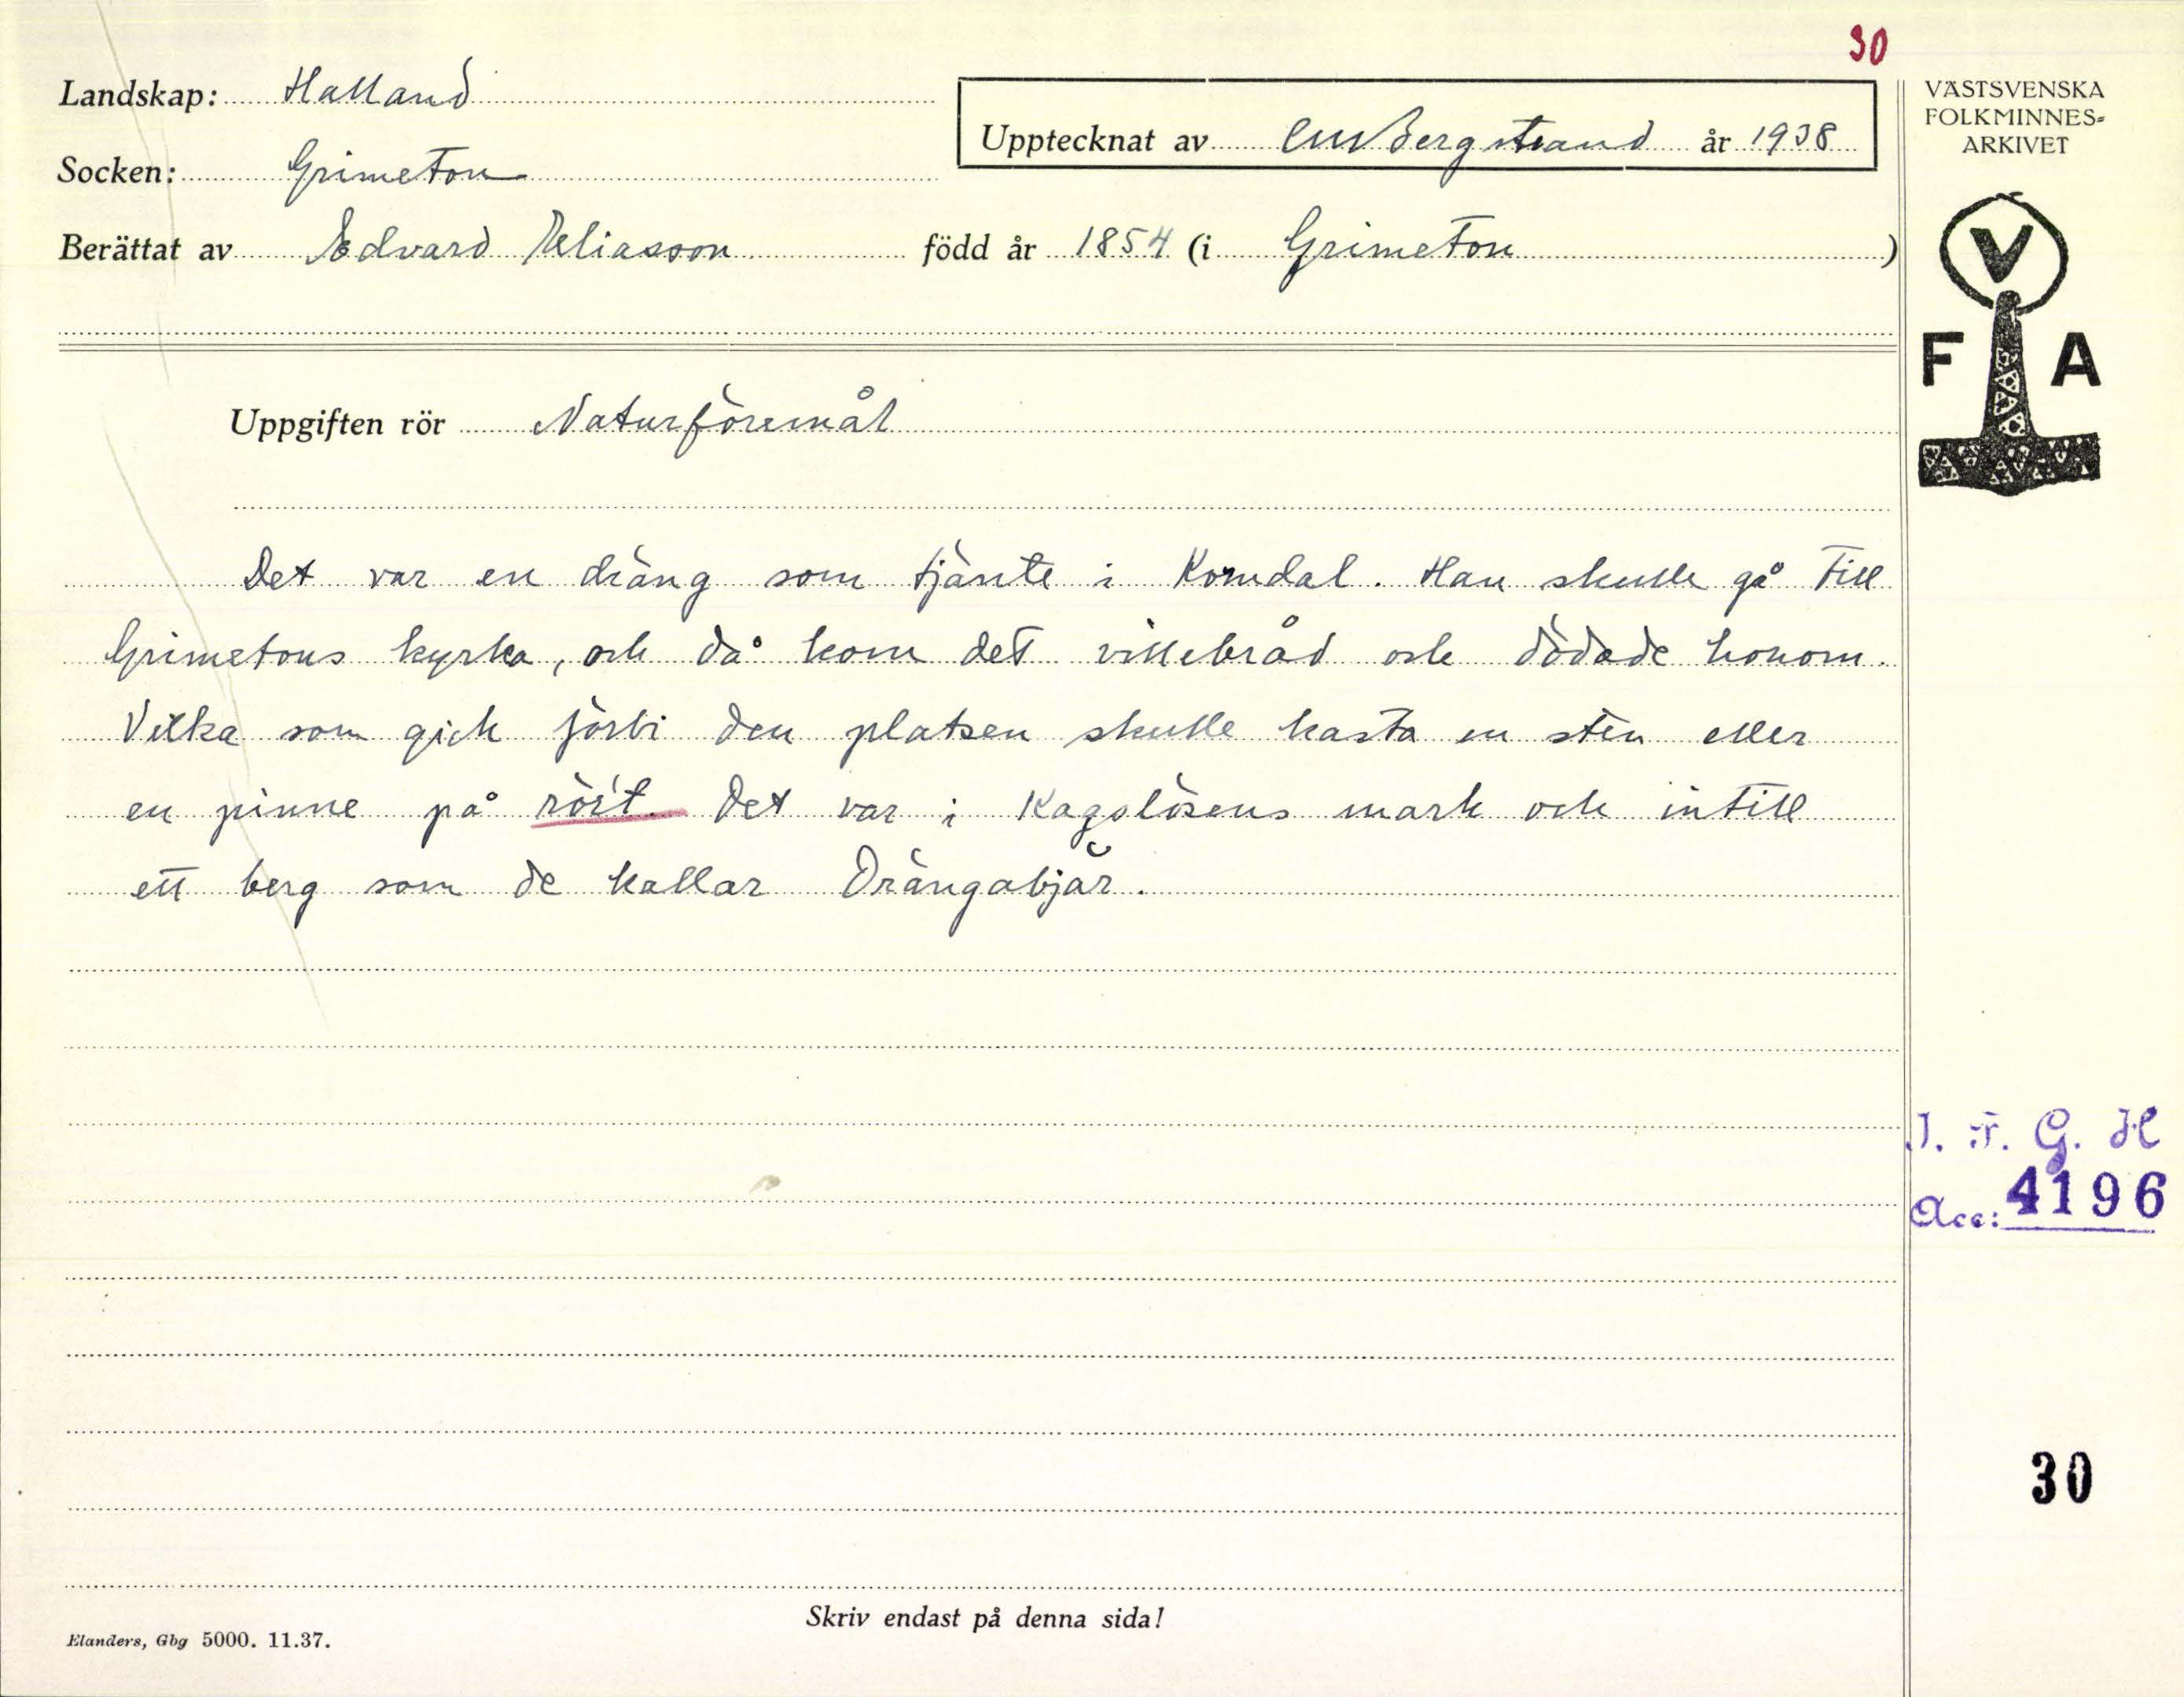 30
Landskap: Halland
Upptecknat av CM Bergstrand år 1938
VÄSTSVENSKA
FOLKMINNES=
ARKIVET
Socken: Grimeton
Berättat av Edvard Eliasson född år 1854 (i Grimeton)
V
F A
Uppgiften rör Naturföremål
Det var en dräng som tjänte i Korndal. Han skulle gå till
Grimetons kyrka, och då kom det villebråd och dödade honom.
Vilka som gick förbi den platsen skulle kasta en sten eller
en pinne på rös't. Det var i Kagslösens mark och intill
ett berg som de kallar Drängabjär.
I. F. G. H
Acc: 4196
30
Skriv endast på denna sida!
Elanders, Gbg 5000. 11.37.